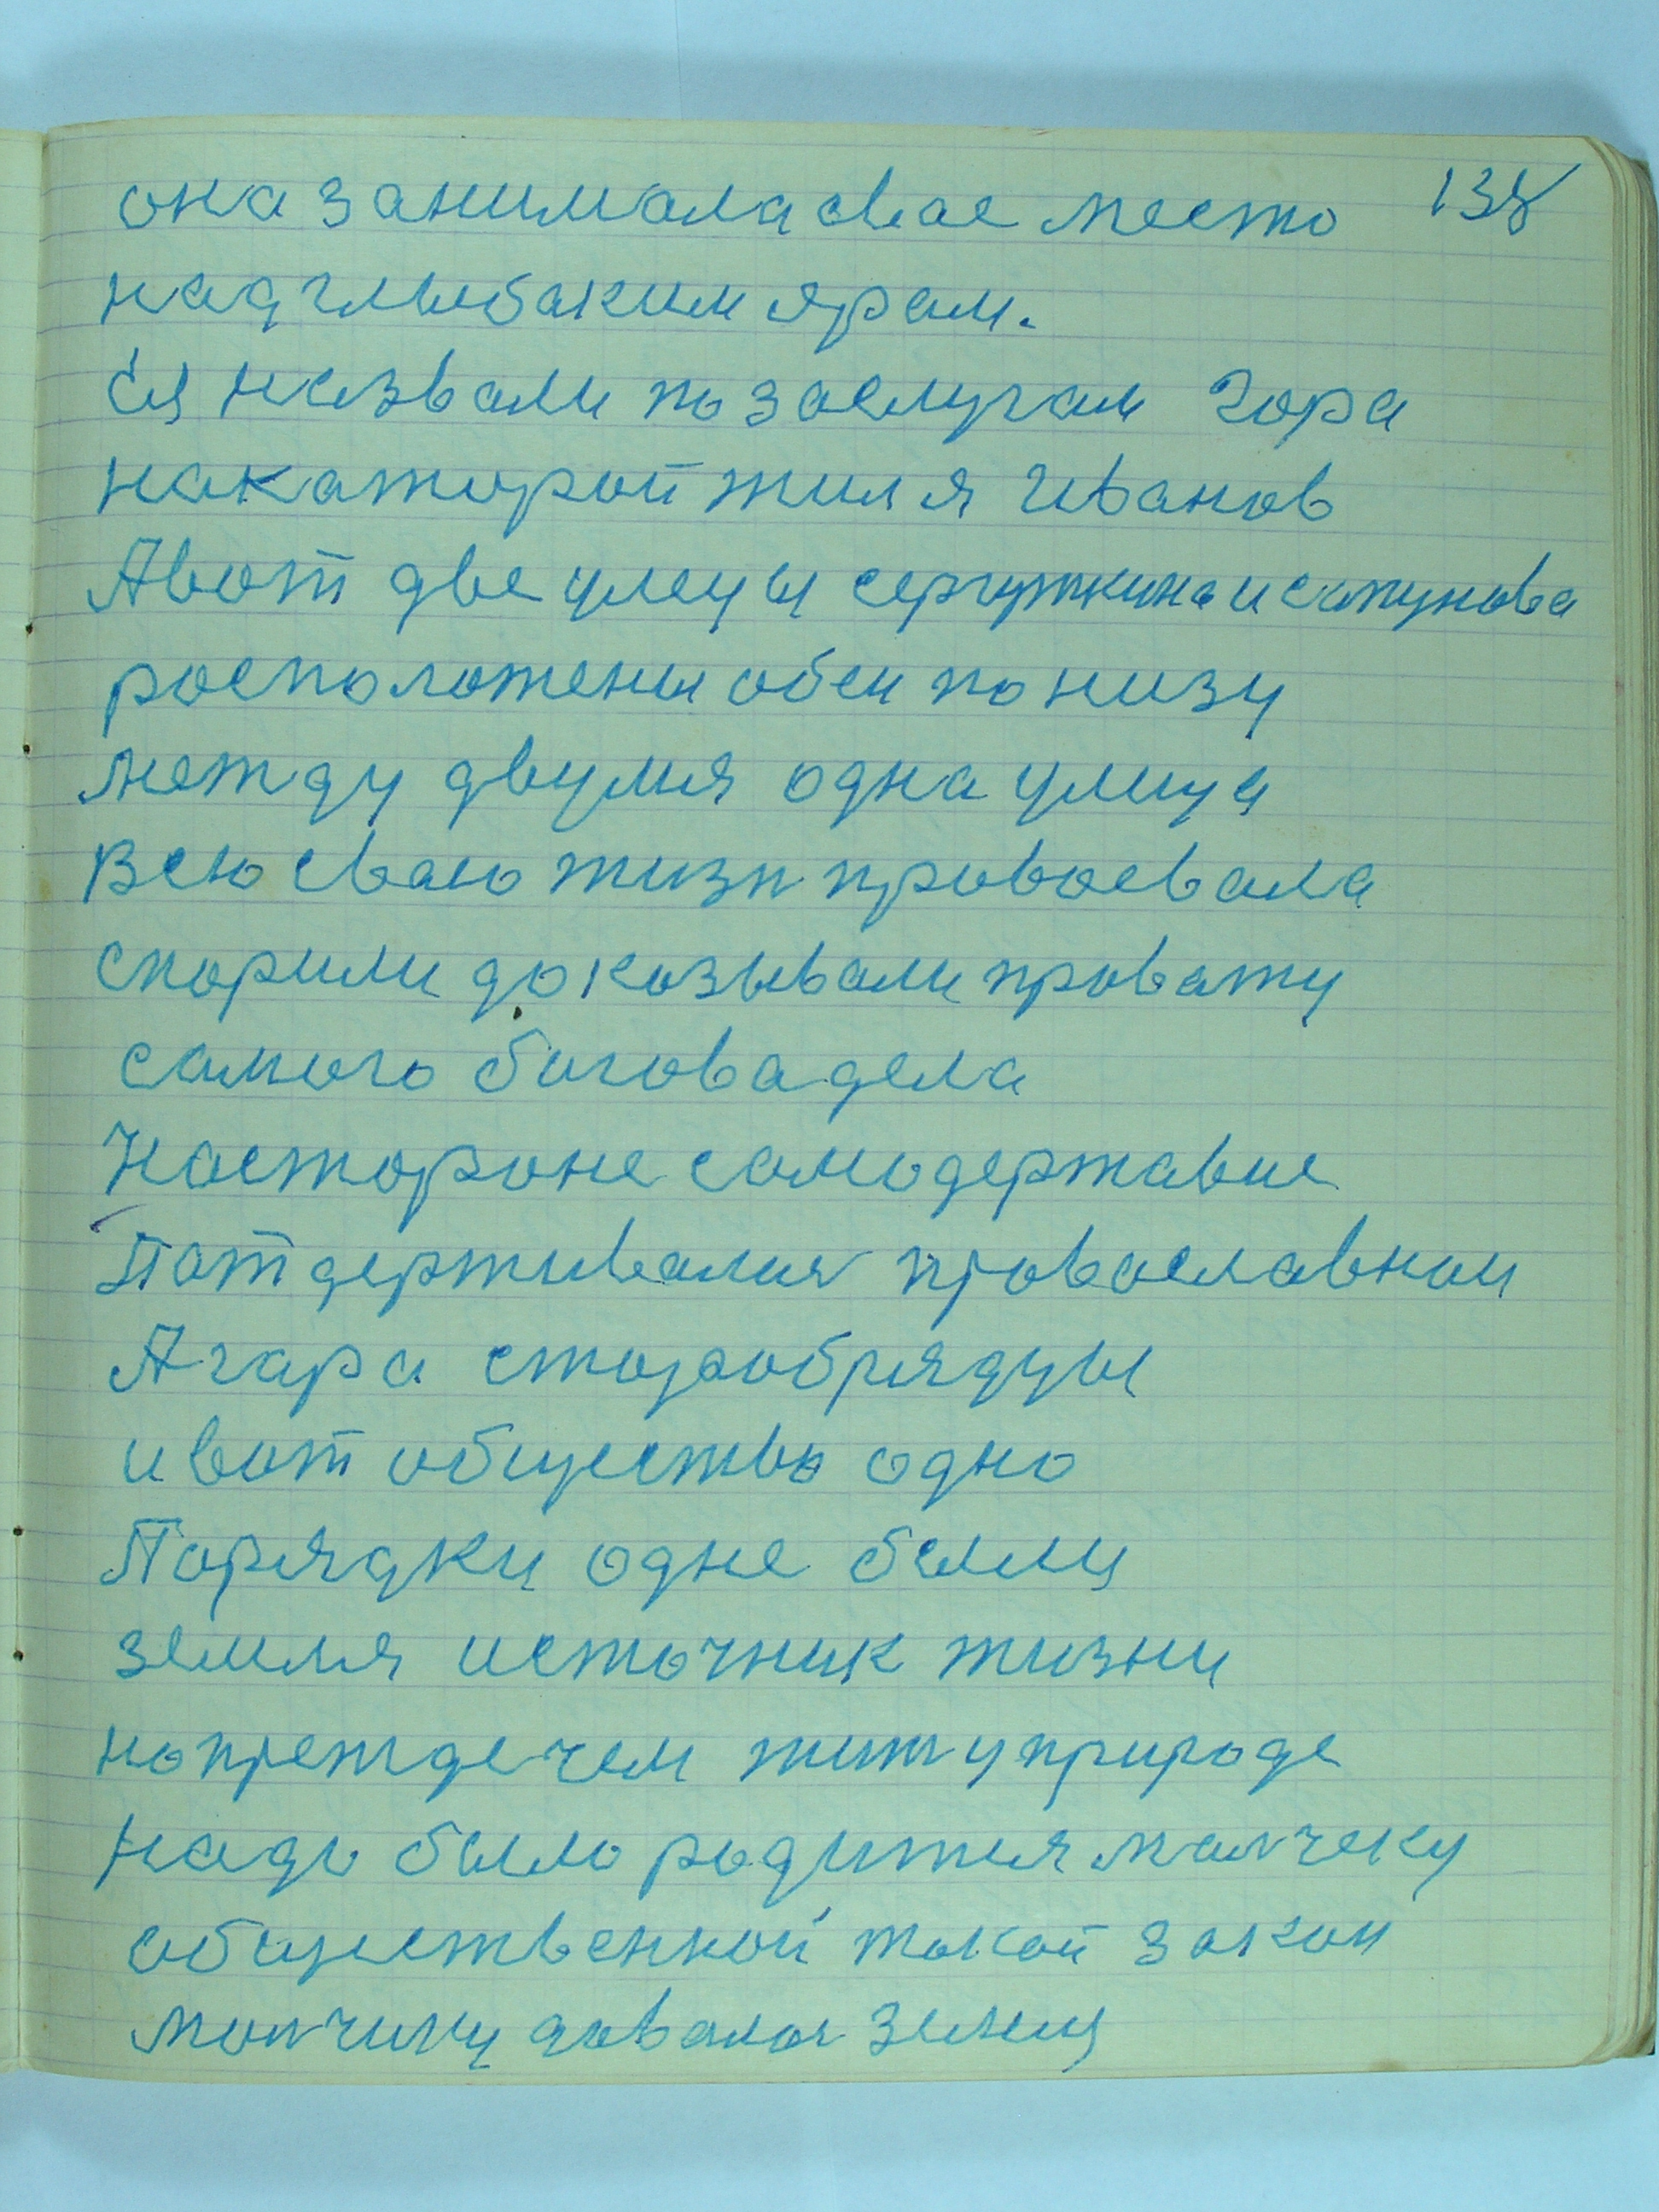 она занимала свае место 138
над глыбаким ярам.
Ея назвали по заслугам Гора
накаторой жил я Иванов
Авот две улецы сергушкина и сапунова
росположены обеи по низу
между двумя одна улица
Всю сваю жизн провоевала
спорили доказывали провату
самого богова дела
Настороне самодержавие
Патдерживался провославнои
Агара старобрядцы
и вот общество одно
Парядки одне были
земля источник жизни
но прежде чем жит у природе
надо было родится малчеку
общественной такой закон
малчику довался земля